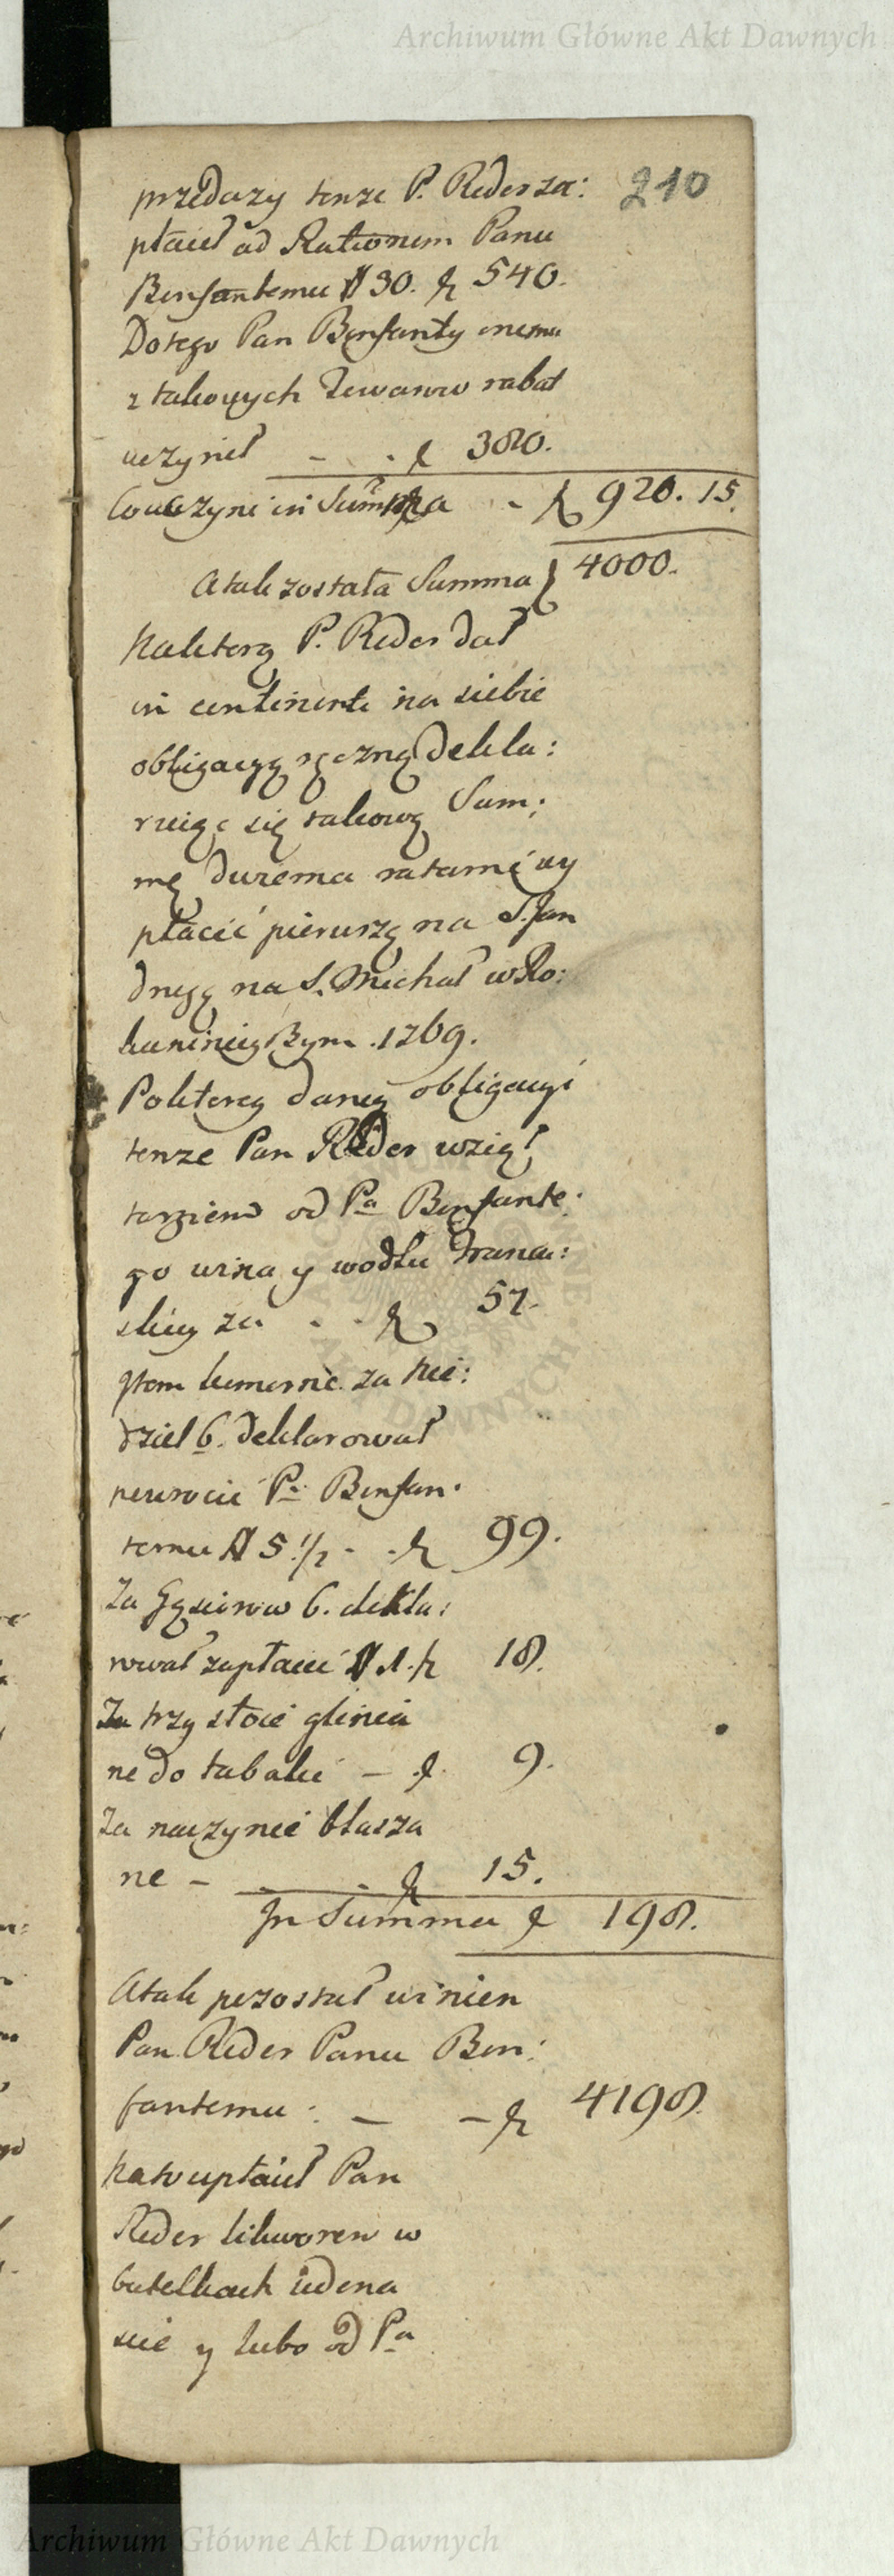 Archiwum Główne Akt Dawnych
210
przedazy tenze P. Reder za:
płacił ad Rationem Panu
Bensantemu # 30. f 540.
Dotego Pan Bensanty onemu
z takowych Towarow rabat
uczynił - . f 380.
Co uczyni in Summa - f 920. 15.
A tak została Summa 4000.
Naktorą P. Reder dał
in continenti na siebie
obligacyą ręczną dekla:
ruiąc się takową Sum:
mę dwiema ratami wy
płacić pierwszą na S. Jan
drugą na S. Michał w Ro:
ku ninieyszym 1769.
Poktorey daney obligacyi
tenze Pan Reder wziął
tarziend od Pa Bensante:
go wina y wodki Francu:
skiey za . . f 57.
Item komorne za Nie:
dziel 6. deklarował
powrocic Pu Bensan:
temu # 5 1/2 - . f 99.
Za Gąsiorow 6. dekla:
rował zapłacić # 1. f 18.
Za trzy słoie glinia
ne do tabaki - f. 9.
Za naczynie blasza
ne - . . f 15.
In Summa f 198.
A tak pozostał winien
Pan Reder Panu Ben:
santemu : - - f 4198.
Nato upłacił Pan
Reder likworem w
butelkach iedena
scie y lubo od Pa
Archiwum Główne Akt Dawnych